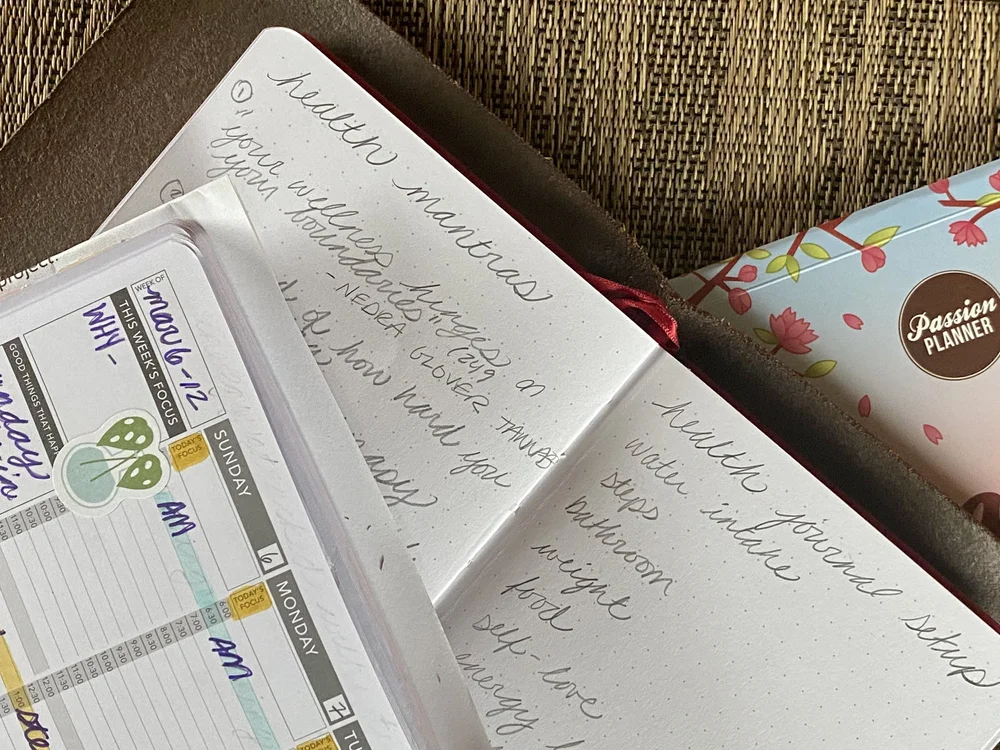 health mantras
①
"your wellness hinges on
your boundaries" (249
- NEDRA GLOVER TAWWAB
②
how hard you
health journal setup
water intake
steps
bathroom
weight
food
self-love
energy
Passion
PLANNER
project.
WEEK OF
mar 6-12
THIS WEEK'S FOCUS
WHY -
GOOD THINGS THAT HAP
SUNDAY
6
TODAY'S FOCUS
AM
MONDAY
7
TODAY'S FOCUS
AM
6:00
6:30
7:00
7:30
8:00
8:30
9:00
9:30
10:00
10:30
11:00
11:30
12:00
12:30
1:00
1:30
TU
TODAY'S